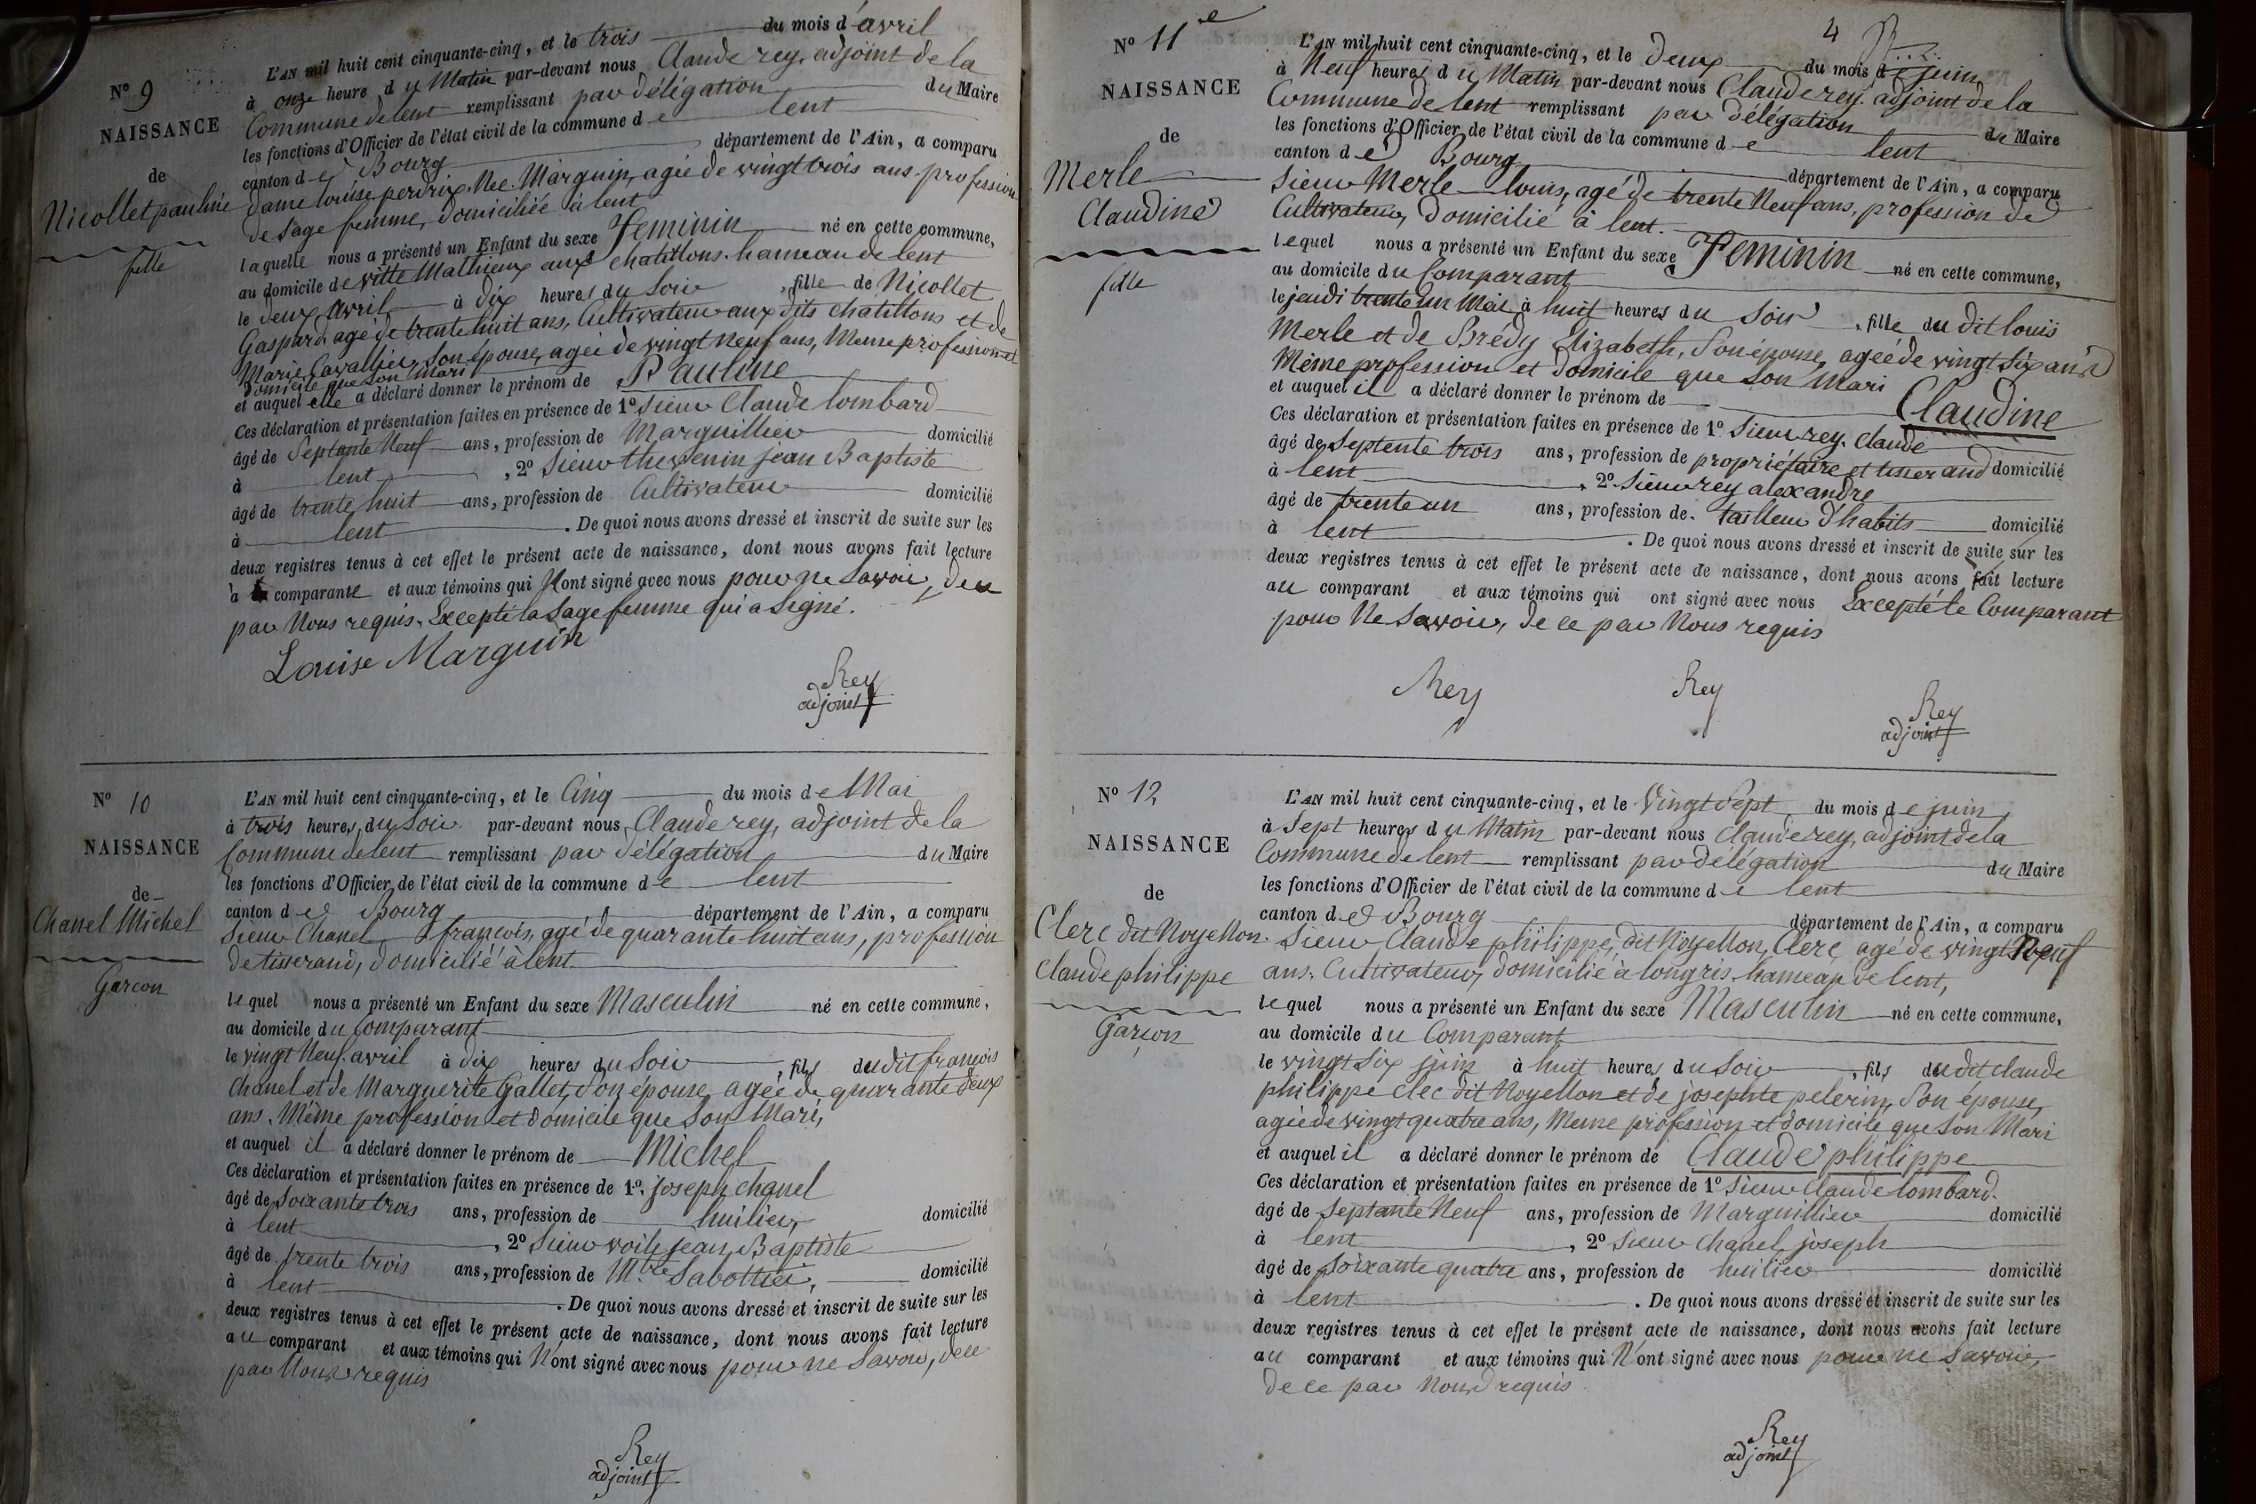 N° 9
NAISSANCE
de
Nicollet pauline
fille
L'AN mil huit cent cinquante-cinq, et le trois du mois d'avril
à onze heure du Matin par-devant nous Claude rey, adjoint de la
Commune de lent remplissant par délégation du Maire
les fonctions d'Officier de l'état civil de la commune de lent
canton de Bourg département de l'Ain, a comparu
dame louise perdrix Nee Marguin, agée de vingt trois ans profession
de sage femme, domiciliée à lent
laquelle nous a présenté un Enfant du sexe Feminin né en cette commune,
au domicile de vitte Mathieux aux chatillons hameau de lent
le deux avril à dix heures du Soir, fille de Nicollet
Gaspard, agé de trente huit ans, Cultivateur aux dits chatillons et de
Marie Cavallier, son épouse, agée de vingt neuf ans, Meme profession et
domicile que son mari
et auquel elle a déclaré donner le prénom de Pauline
Ces déclaration et présentation faites en présence de 1° Sieur Claude lombard
âgé de Septante Neuf ans, profession de Marguillier domicilié
à lent, 2° Sieur thevenin jean Baptiste
âgé de trente huit ans, profession de Cultivateur domicilié
à lent. De quoi nous avons dressé et inscrit de suite sur les
deux registres tenus à cet effet le présent acte de naissance, dont nous avons fait lecture
à la comparante et aux témoins qui N'ont signé avec nous pour ne Savoir, de ce
par Nous requis. Excepté la Sage femme qui a Signé.
Louise Marguin
Rey
adjoint
N° 10
NAISSANCE
de
Chanel Michel
Garcon
L'AN mil huit cent cinquante-cinq, et le Cinq du mois de Mai
à trois heures du Soir par-devant nous Claude rey, adjoint de la
Commune de lent remplissant par délégation du Maire
les fonctions d'Officier de l'état civil de la commune de lent
canton de Bourg département de l'Ain, a comparu
Sieur Chanel françois, agé de quarante huit ans, profession
de tisserand, domicilié à lent
lequel nous a présenté un Enfant du sexe Masculin né en cette commune,
au domicile du Comparant
le vingt Neuf avril à dix heures du Soir, fils du dit françois
Chanel et de Marguerite Gallet, Son épouse, agée de quarante deux
ans, Même profession et domicile que Son Mari,
et auquel il a déclaré donner le prénom de Michel
Ces déclaration et présentation faites en présence de 1° Joseph chanel
âgé de Soixante trois ans, profession de huilier, domicilié
à lent, 2° Sieur voile jean Baptiste
âgé de trente trois ans, profession de M.tre Sabottier, domicilié
à lent. De quoi nous avons dressé et inscrit de suite sur les
deux registres tenus à cet effet le présent acte de naissance, dont nous avons fait lecture
au comparant et aux témoins qui N'ont signé avec nous pour ne Savoir, de ce
par Nous requis
Rey
adjoint
4
N° 11e
NAISSANCE
de
Merle
Claudine
fille
L'AN mil huit cent cinquante-cinq, et le deux du mois de juin,
à Neuf heures du Matin par-devant nous Claude rey, adjoint de la
Commune de lent remplissant par délégation du Maire
les fonctions d'Officier de l'état civil de la commune de lent
canton de Bourg département de l'Ain, a comparu
Sieur Merle louis, agé de trente Neuf ans, profession de
Cultivateur, domicilié à lent.
lequel nous a présenté un Enfant du sexe Feminin né en cette commune,
au domicile du Comparant
le jeudi trente un Mai à huit heures du Soir, fille du dit louis
Merle et de Brédy Elizabeth, Son épouse, agée de vingt Six ans
Même profession et domicile que Son Mari
et auquel il a déclaré donner le prénom de Claudine
Ces déclaration et présentation faites en présence de 1° Sieur rey Claude
âgé de Septente trois ans, profession de propriétaire et tisserand domicilié
à lent, 2° Sieur rey alexandre
âgé de trente un ans, profession de tailleur d'habits domicilié
à lent. De quoi nous avons dressé et inscrit de suite sur les
deux registres tenus à cet effet le présent acte de naissance, dont nous avons fait lecture
au comparant et aux témoins qui ont signé avec nous Excepté le Comparant
pour Ne Savoir, de ce par Nous requis
Rey Rey
Rey
adjoint
N° 12
NAISSANCE
de
Clerc dit Noyellon
Claude philippe
Garçon
L'AN mil huit cent cinquante-cinq, et le Vingt Sept du mois de juin,
à Sept heures du Matin par-devant nous Claude rey, adjoint de la
Commune de lent remplissant par délégation du Maire
les fonctions d'Officier de l'état civil de la commune de lent
canton de Bourg département de l'Ain, a comparu
Sieur Claude philippe, dit Noyellon, Clerc, agé de vingt Neuf
ans, Cultivateur, domicilié à longris hameau de lent,
lequel nous a présenté un Enfant du sexe Masculin né en cette commune,
au domicile du Comparant
le vingt Six juin à huit heures du Soir, fils du dit claude
philippe clec dit Noyellon et de josephte pelerin, Son épouse,
agée de vingt quatre ans, Meme profession et domicile que Son Mari
et auquel il a déclaré donner le prénom de Claude philippe
Ces déclaration et présentation faites en présence de 1° Sieur Claude lombard.
âgé de Septante Neuf ans, profession de Marguillier domicilié
à lent, 2° Sieur Chanel joseph
âgé de Soixante quatre ans, profession de huilier domicilié
à lent. De quoi nous avons dressé et inscrit de suite sur les
deux registres tenus à cet effet le présent acte de naissance, dont nous avons fait lecture
au comparant et aux témoins qui N'ont signé avec nous pour ne Savoir,
de ce par Nous requis
Rey
adjoint